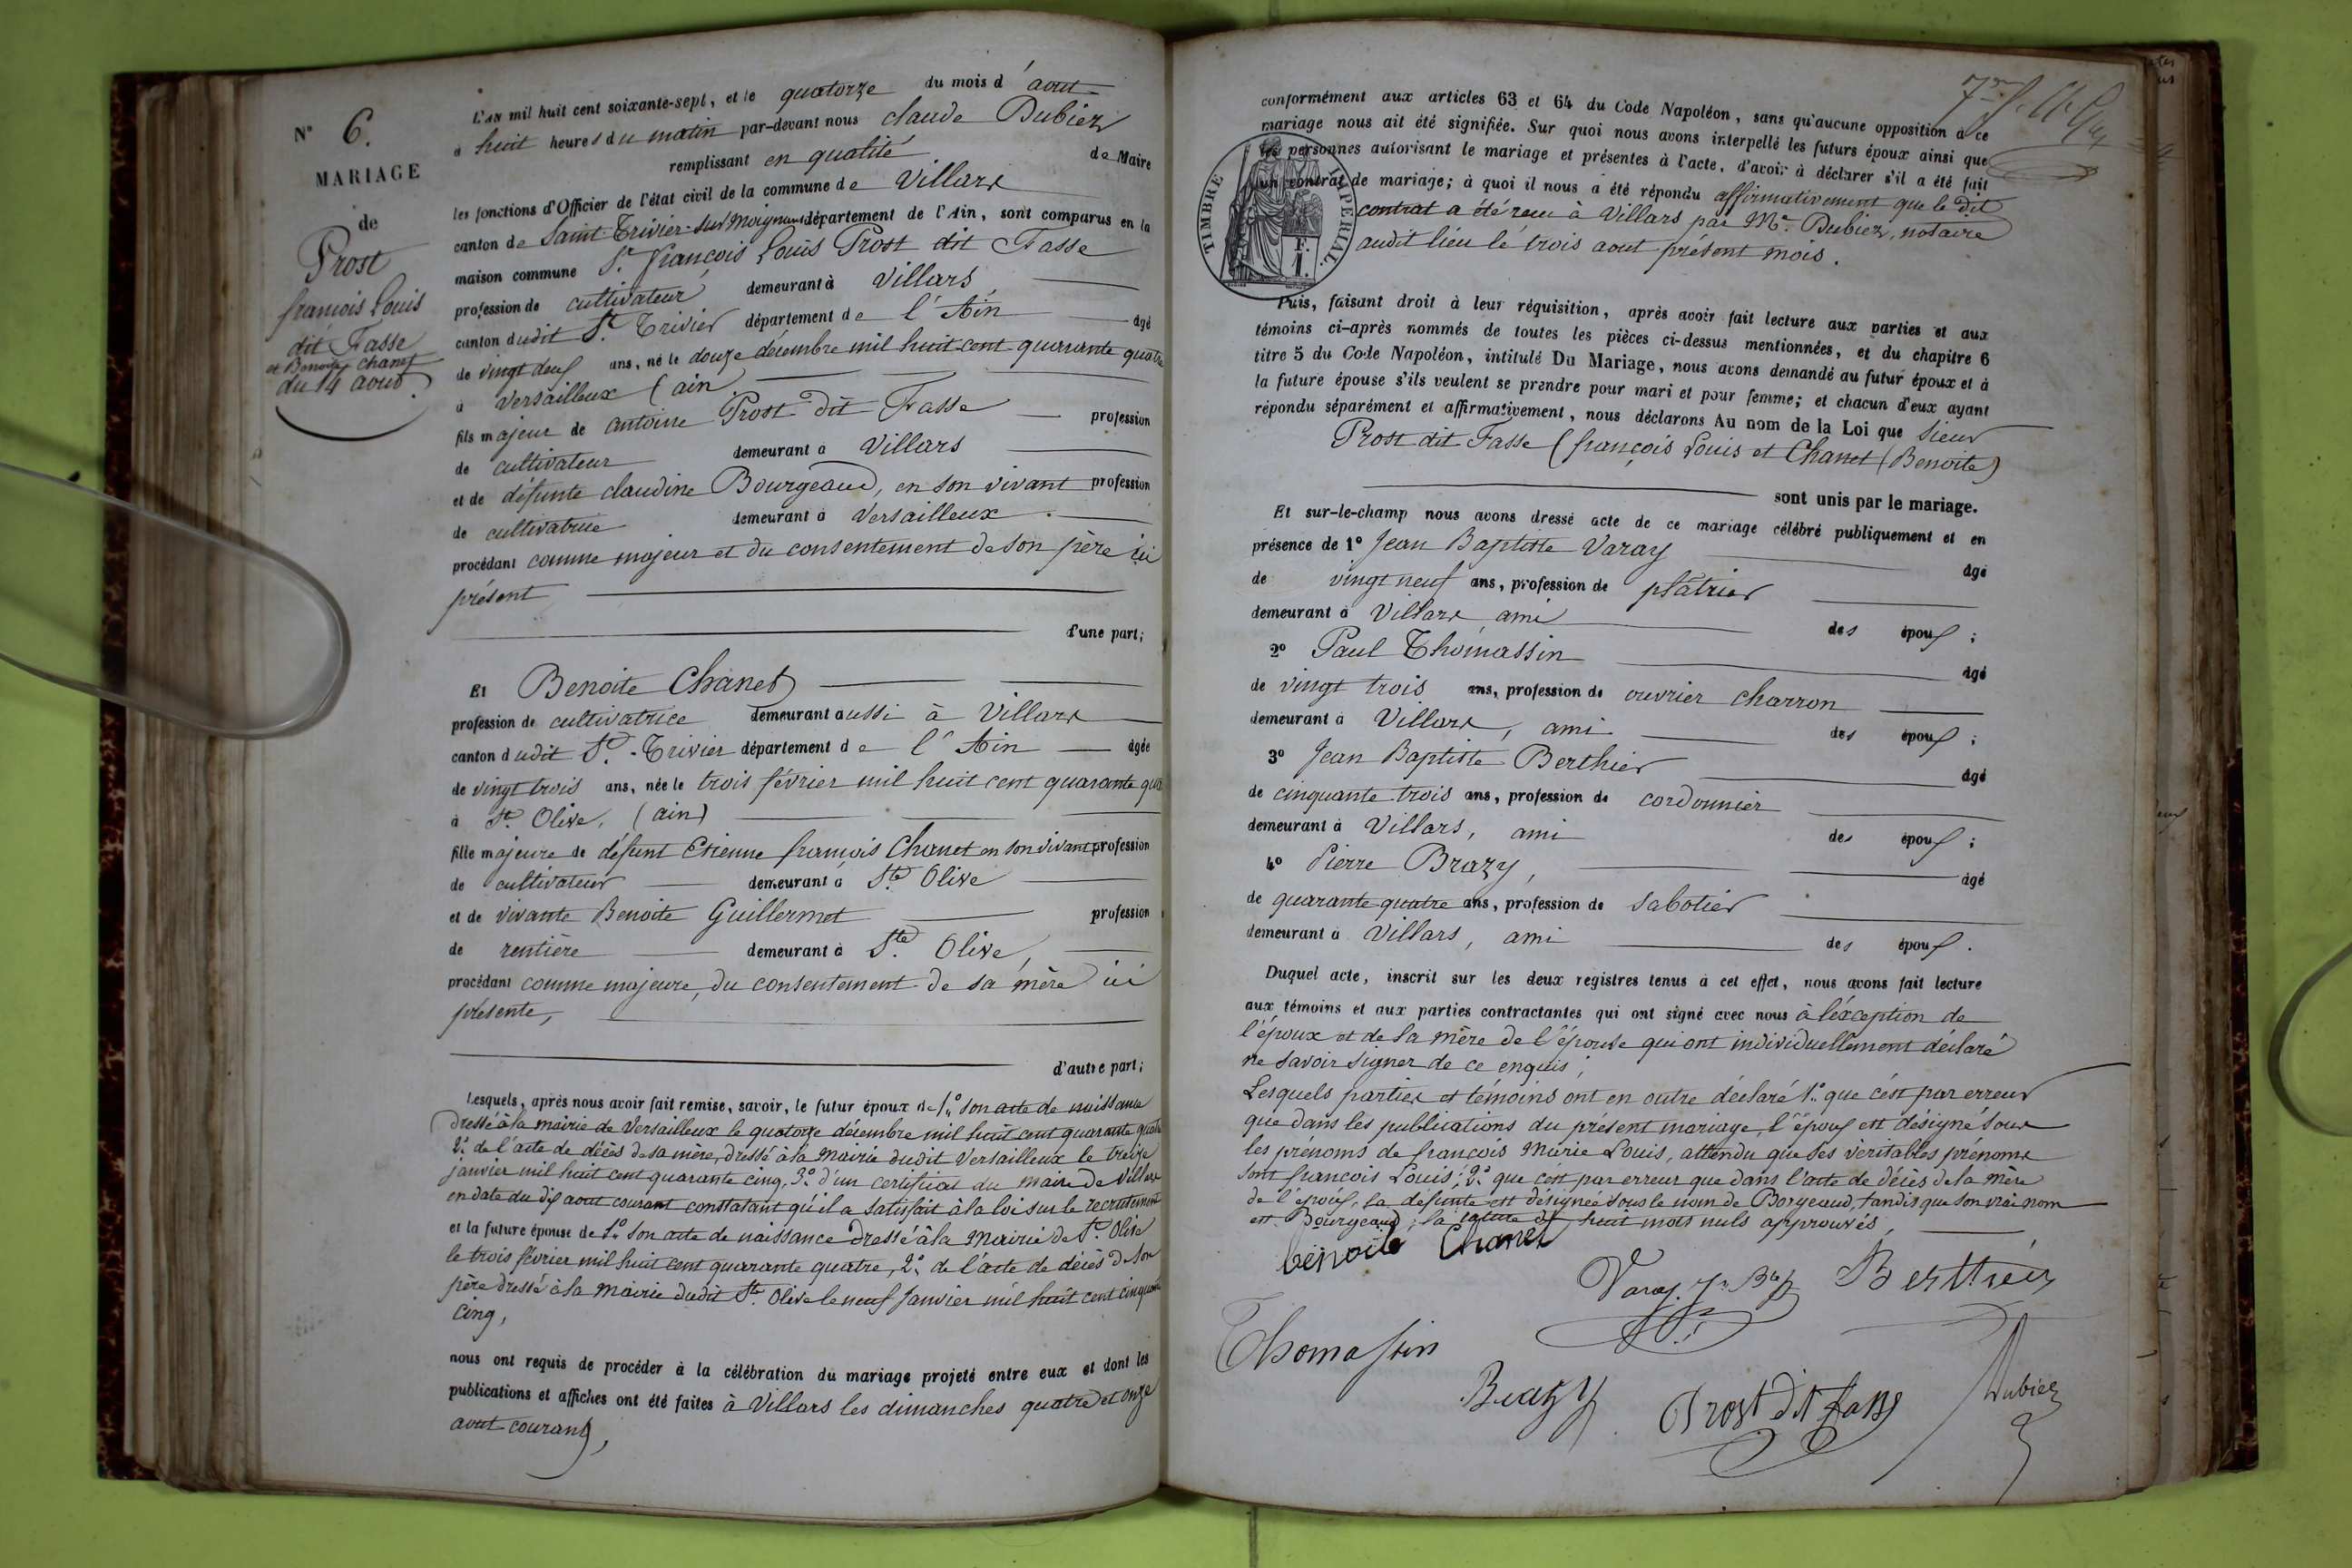 N° 6.
MARIAGE
de
Prost
francois Louis
dit Fasse
et Benoite Chanet
du 14 aout.
L'an mil huit cent soixante-sept, et le quatorze du mois d'aout
à huit heures du matin par-devant nous claude Dubiez
remplissant en qualité de Maire
les fonctions d'Officier de l'état civil de la commune de Villars
canton de Saint-Trivier-sur-Moignans département de l'Ain, sont comparus en la
maison commune Sr. françois Louis Prost dit Fasse
profession de cultivateur demeurant à Villars
canton dudit St. Trivier département de l'Ain âgé
de vingt deux ans, né le douze décembre mil huit cent quarante quatre
à Versailleux (ain
fils majeur de antoine Prost dit Fasse profession
de cultivateur demeurant à Villars
et de défunte claudine Bourgeaud, en son vivant profession
de cultivatrice demeurant à Versailleux.
procédant comme majeur et du consentement de son père ici
présent
d'une part;
Et Benoite Chanet
profession de cultivatrice demeurant aussi à Villars
canton dudit St. Trivier département de l'Ain âgée
de vingt trois ans, née le trois février mil huit cent quarante qua
à Ste. Olive, (ain)
fille majeure de défunt Etienne francois Chanet en son vivant profession
de cultivateur demeurant à Ste. Olive
et de vivante Benoite Guillermet profession
de rentière demeurant à Ste. Olive,
procédant comme majeure, du consentement de sa mère ici
présente,
d'autre part;
Lesquels, après nous avoir fait remise, savoir, le futur époux de 1° son acte de naissance
dressé à la mairie de Versailleux le quatorze décembre mil huit cent quarante quatre
2° de l'acte de décès de sa mère, dressé à la Mairie dudit Versailleux le treize
janvier mil huit cent quarante cinq, 3° d'un certificat du maire de Villars
en date du dix aout courant constatant qu'il a satisfait à la loi sur le recrutement
et la future épouse de 1° son acte de naissance dressé à la Mairie de Ste. Olive
le trois février mil huit cent quarante quatre, 2° de l'acte de décès de son
père dressé à la Mairie dudit Ste. Olive le neuf Janvier mil huit cent cinquante
cinq,
nous ont requis de procéder à la célébration du mariage projeté entre eux et dont les
publications et affiches ont été faites à Villars les dimanches quatre et onze
aout courant,
conformément aux articles 63 et 64 du Code Napoléon, sans qu'aucune opposition à ce
mariage nous ait été signifiée. Sur quoi nous avons interpellé les futurs époux ainsi que
les personnes autorisant le mariage et présentes à l'acte, d'avoir à déclarer s'il a été fait
un contrat de mariage; à quoi il nous a été répondu affirmativement que le dit
contrat a été recu à Villars par Me. Dubiez, notaire
audit lieu le trois aout présent mois.
TIMBRE IMPERIAL.
Puis, faisant droit à leur réquisition, après avoir fait lecture aux parties et aux
témoins ci-après nommés de toutes les pièces ci-dessus mentionnées, et du chapitre 6
titre 5 du Code Napoléon, intitulé Du Mariage, nous avons demandé au futur époux et à
la future épouse s'ils veulent se prendre pour mari et pour femme; et chacun d'eux ayant
répondu séparément et affirmativement, nous déclarons Au nom de la Loi que sieur
Prost dit Fasse (françois Louis et Chanet (Benoite)
sont unis par le mariage.
Et sur-le-champ nous avons dressé acte de ce mariage célébré publiquement et en
présence de 1° Jean Baptiste Varay âgé
de vingt neuf ans, profession de plâtrier
demeurant à Villars ami des époux;
2° Paul Thomassin âgé
de vingt trois ans, profession de ouvrier charron
demeurant à Villars, ami des époux;
3° Jean Baptiste Berthier âgé
de cinquante trois ans, profession de cordonnier
demeurant à Villars, ami des époux;
4° Pierre Brazy, âgé
de quarante quatre ans, profession de sabotier
demeurant à Villars, ami des époux.
Duquel acte, inscrit sur les deux registres tenus à cet effet, nous avons fait lecture
aux témoins et aux parties contractantes qui ont signé avec nous à l'éxception de
l'époux et de la mère de l'épouse qui ont individuellement déclaré
ne savoir signer de ce enquis;
Lesquels parties et témoins ont en outre déclaré 1° que c'est par erreur
que dans les publications du présent mariage, l'époux est désigné sous
les prénoms de françois Marie Louis, attendu que ses véritables prénoms
sont françois Louis; 2° que c'est par erreur que dans l'acte de décès de la mère
de l'époux, la défunte est désignée sous le nom de Borgeaud, tandis que son vrai nom
est Bourgeaud; la rature de huit mots nuls approuvés,
benoite Chanet
Varay. Jn Bte
Berthier
Thomassin
Brazy
Prost dit fasse
Dubiez